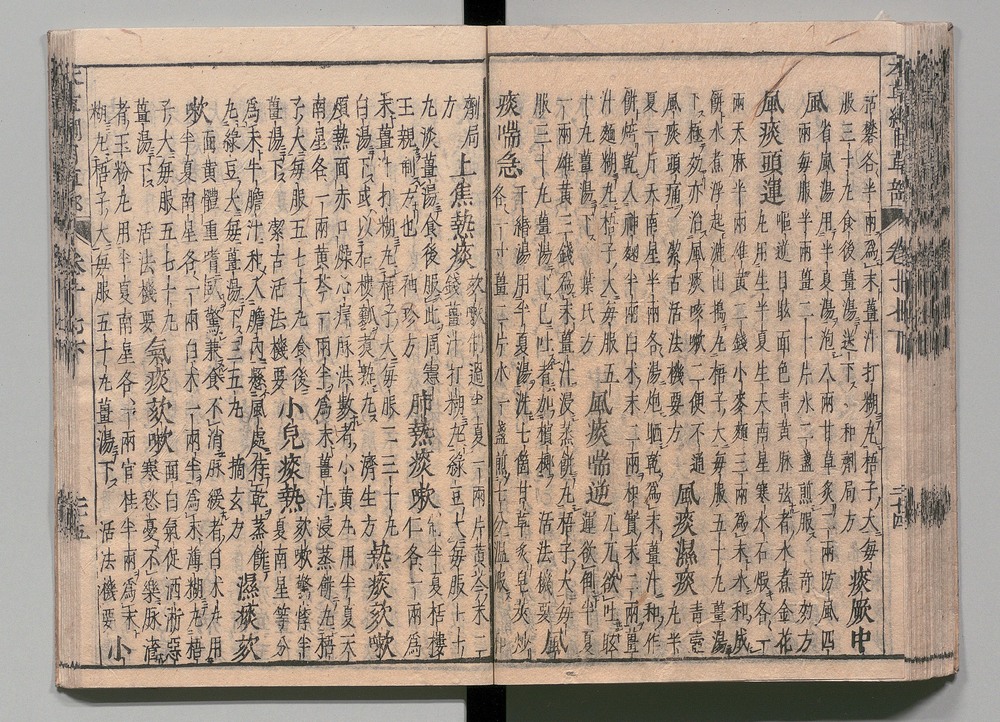 活礬各半兩爲末薑汁打糊丸梧子大每
服三十丸食後薑湯送下和劑局方 痰厥中
風 省風湯用半夏湯泡八兩甘草炙二兩防風四
兩每服半兩薑二十片水二盞煎服 奇効方
風痰頭運 嘔逆目眩面色青黃脉弦者水煮金花
丸用生半夏生天南星寒水石煅各一
兩天麻半兩雄黃二錢小麥麵三兩爲末水和成
餅水煮浮起漉出搗丸梧子大每服五十丸薑湯
下極効亦治風痰咳嗽二便不通
風痰頭痛 絜古活法機要方 風痰濕痰 青壺丸半
夏一斤天南星半兩各湯炮晒乾爲末薑汁和作
餅焙乾入神麴半兩白术末二兩枳實末二兩薑
汁麵糊丸梧子大每服五
十丸薑湯下葉氏方 風痰喘逆 兀兀欲吐眩運欲倒半夏
一兩雄黃三錢爲末薑汁浸蒸餅丸梧子大每
服三十丸薑湯下已吐者加檳榔 活法機要 風
痰喘急 千緡湯用半夏湯洗七箇甘草炙皂莢炒
各一寸薑二片水一盞煎七分溫服
劑局方 上焦熱痰 欬嗽制過半夏一兩片黃芩末二
錢薑汁打糊丸綠豆大每服七十
丸淡薑湯食後服此周憲
王親制方也 袖珍方 肺熱痰嗽 制半夏栝樓仁各一兩爲
末薑汁打糊丸梧子大每服二三十丸
白湯下或以栝樓瓤煮熟丸 濟生方 熱痰欬嗽
煩熱面赤口燥心痛脉洪數者小黃丸用半夏天
南星各一兩黃芩一兩半爲末薑汁浸蒸餅丸梧
子大每服五七十丸食後
薑湯下 潔古活法機要 小兒痰熱 欬嗽驚悸半夏南星等分
爲末牛膽汁和入膽內懸風處待乾蒸餅
丸綠豆大每薑湯下三五丸 摘玄方 濕痰欬
嗽 面黃體重嗜臥驚兼食不消脉緩者白术丸用
半夏南星各一兩白术一兩半爲末薄糊丸梧
子大每服五七十丸
薑湯下 活法機要 氣痰欬嗽 面白氣促洒淅惡寒愁憂不樂脉濇
者玉粉丸用半夏南星各一兩官桂半兩爲末
糊丸梧子大每服五十丸薑湯下 活法機要 小